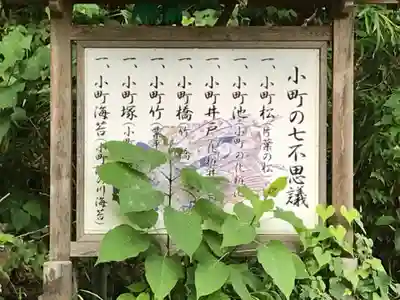 小町の七不思議
一、小町松(片葉の松
一、小町池(小町の
一、小町井戸
一、小町橋(竹
一、小町竹
一、小町塚(小
一、小町海苔(小町 川海苔)